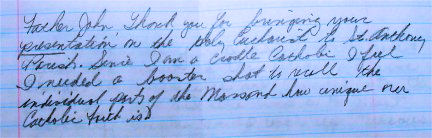 Father John Thank you for bringing your
presentation on the Holy Eucharist to St. Anthony
Parish. Since I am a cradle Catholic I feel
I needed a booster shot to recall the
individual parts of the Mass and how unique our
Catholic faith is